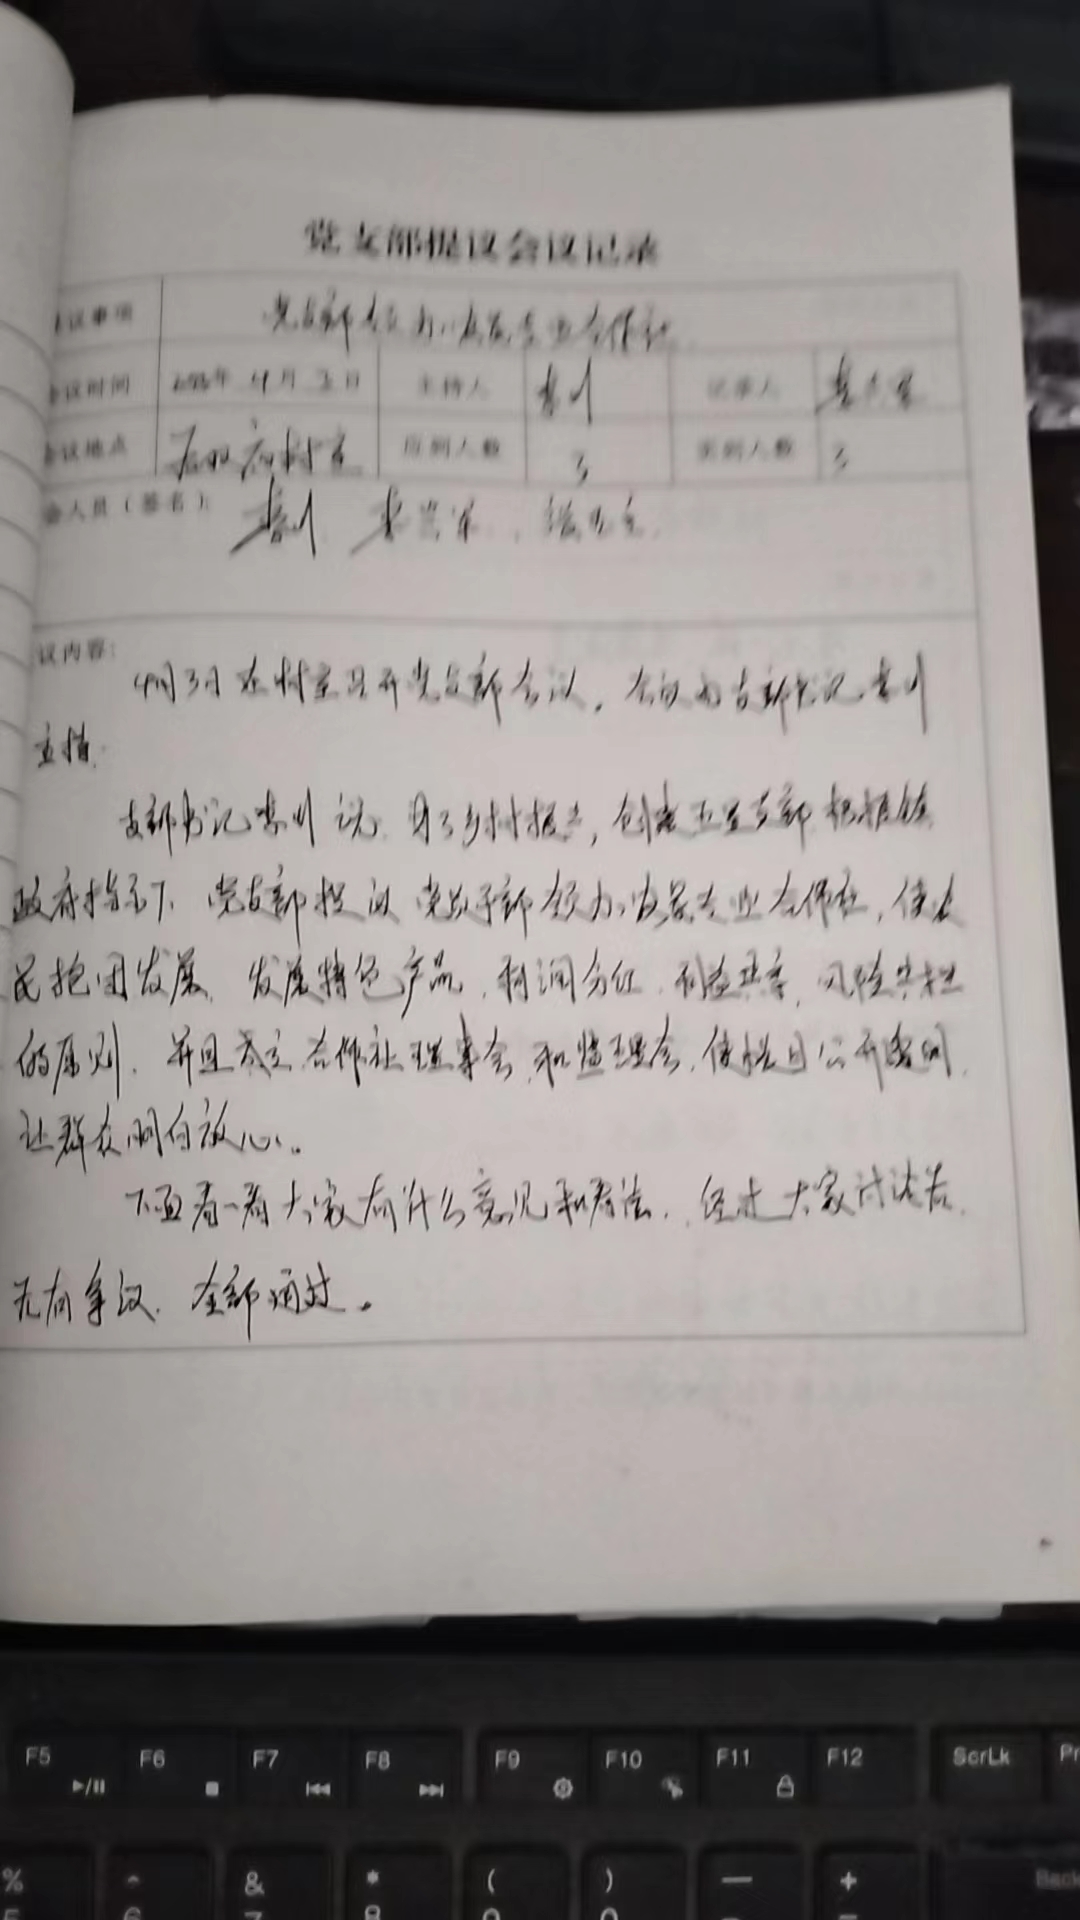 党支部提议会议记录
议事项 党支部领办农民专业合作社
议时间 年 4月3日 主持人 记录人
议地点 村室 应到人数 3 实到人数 3
人员(签名):
议内容:
4月3日在村室召开党支部会议,会议由支部书记
主持.
支部书记 说 为了乡村振兴,创建五星支部 根据镇
政府指示下,党支部提议党支部领办农民专业合作社,使农
民抱团发展,发展特色产品,利润分红,利益共享,风险共担
的原则,并且成立合作社理事会和监理会,使 公开
让群众明白放心。
下面看一看大家有什么意见和看法,经过大家讨论后,
无有争议,全部通过。
F5 F6 F7 F8 F9 F10 F11 F12 ScrLk Pr
% ^ & * ( ) — +
6 7 8 9 0 Back